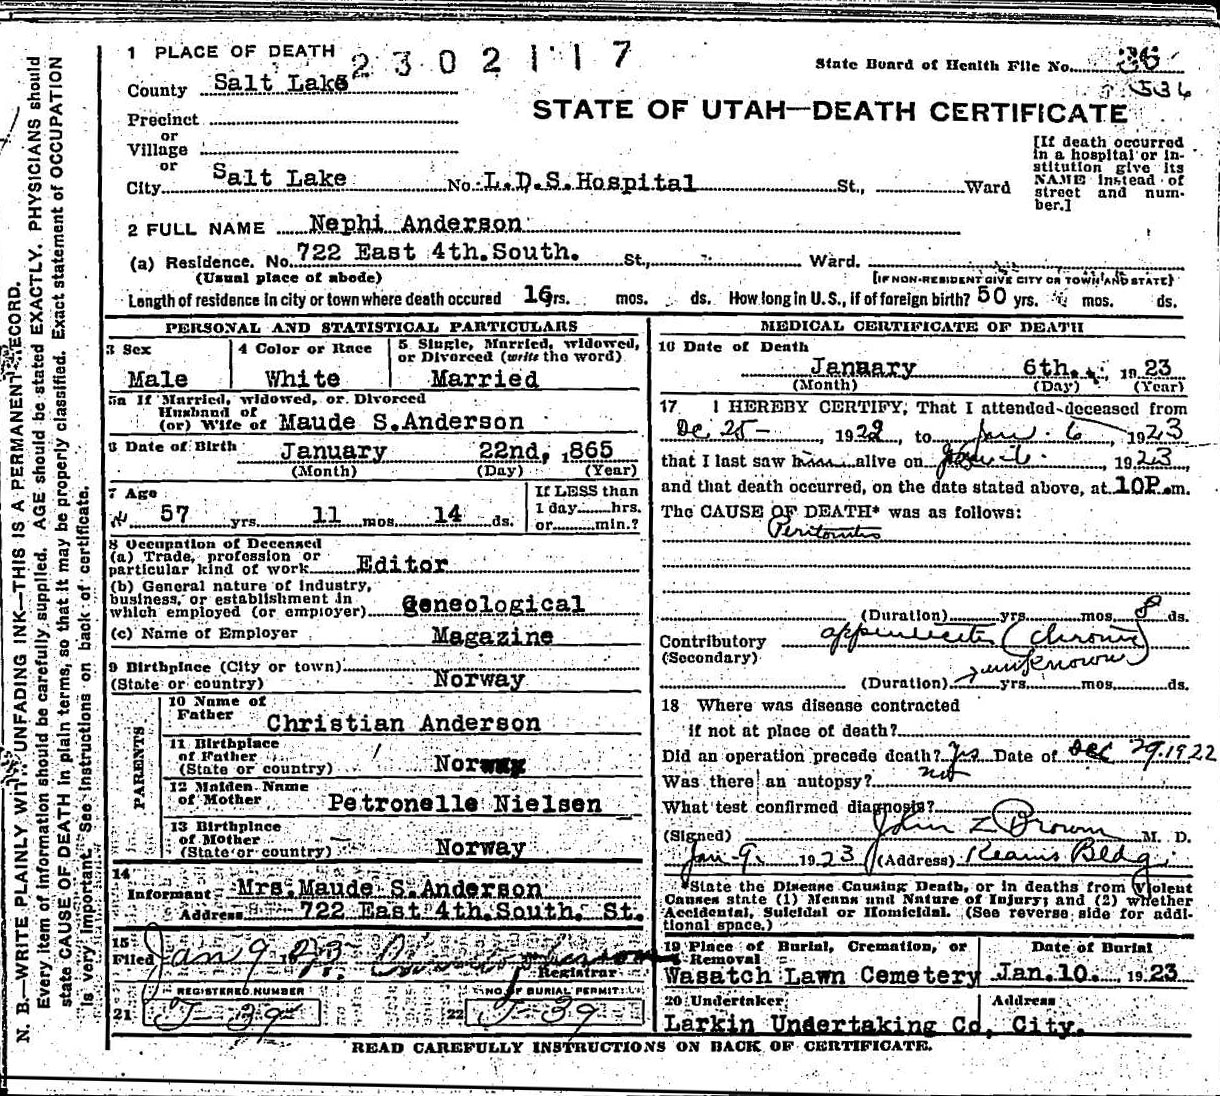 1 PLACE OF DEATH 2 3 0 2 1 1 7
State Board of Health File No. 36
536
County Salt Lake
STATE OF UTAH—DEATH CERTIFICATE
Precinct
or
Village
or
City Salt Lake No. L.D.S.Hospital St., Ward
[If death occurred
in a hospital or in-
stitution give its
NAME instead of
street and num-
ber.]
2 FULL NAME Nephi Anderson
(a) Residence. No. 722 East 4th.South. St., Ward.
(Usual place of abode)
[IF NON-RESIDENT GIVE CITY OR TOWN AND STATE]
Length of residence in city or town where death occured 16 yrs. mos. ds. How long in U.S., if of foreign birth? 50 yrs. mos. ds.
PERSONAL AND STATISTICAL PARTICULARS
3 Sex
Male
4 Color or Race
White
5 Single, Married, widowed,
or Divorced (write the word)
Married
5a If Married, widowed, or Divorced
Husband of
(or) Wife of Maude S.Anderson
6 Date of Birth January 22nd, 1865
(Month) (Day) (Year)
7 Age
57 yrs 11 mos 14 ds.
If LESS than
1 day hrs.
or min.?
8 Occupation of Deceased
(a) Trade, profession or
particular kind of work Editor
(b) General nature of industry,
business, or establishment in
which employed (or employer) Geneological
(c) Name of Employer Magazine
9 Birthplace (City or town)
(State or country) Norway
PARENTS
10 Name of
Father Christian Anderson
11 Birthplace
of Father
(State or country) Norway
12 Maiden Name
of Mother Petronelle Nielsen
13 Birthplace
of Mother
(State or country) Norway
14
Informant Mrs.Maude S.Anderson
Address 722 East 4th.South. St.
15
Filed Jan 9 1923
Registrar
REGISTERED NUMBER
21 J-39
NO. OF BURIAL PERMIT
22 J-39
MEDICAL CERTIFICATE OF DEATH
16 Date of Death
January 6th. 1923
(Month) (Day) (Year)
17 I HEREBY CERTIFY, That I attended deceased from
Dec 25- , 1922, to Jan. 6 , 1923
that I last saw him alive on Jan 6. , 1923
and that death occurred, on the date stated above, at 10P. m.
The CAUSE OF DEATH* was as follows:
Peritonitis
(Duration) yrs mos 8 ds.
Contributory appendicitis (chronic)
(Secondary)
(Duration) unknown yrs mos ds.
18 Where was disease contracted
if not at place of death?
Did an operation precede death? Yes Date of Dec 29.1922
Was there an autopsy? not
What test confirmed diagnosis?
(Signed) John Z Brown M. D.
Jan-9. 1923 (Address) Kearns Bldg.
*State the Disease Causing Death, or in deaths from Violent
Causes state (1) Means and Nature of Injury; and (2) whether
Accidental, Suicidal or Homicidal. (See reverse side for addi-
tional space.)
19 Place of Burial, Cremation, or
Removal
Wasatch Lawn Cemetery
Date of Burial
Jan.10. 1923
20 Undertaker
Larkin Undertaking Co,
Address
City.
READ CAREFULLY INSTRUCTIONS ON BACK OF CERTIFICATE.
N. B.—WRITE PLAINLY WITH UNFADING INK—THIS IS A PERMANENT RECORD.
Every item of information should be carefully supplied. AGE should be stated EXACTLY. PHYSICIANS should
state CAUSE OF DEATH in plain terms, so that it may be properly classified. Exact statement of OCCUPATION
is very important. See instructions on back of certificate.